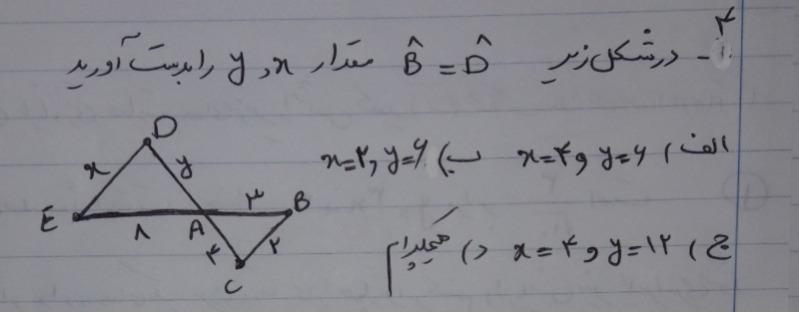 ۴- در شکل زیر B̂ = D̂ مقدار x و y را بدست آورید
الف) x=۴ و y=۶ ب) x=۲ و y=۶
ج) x=۴ و y=۱۲ د) هیچکدام
D
x y
E ۸ A ۳ B
۴ ۲
C